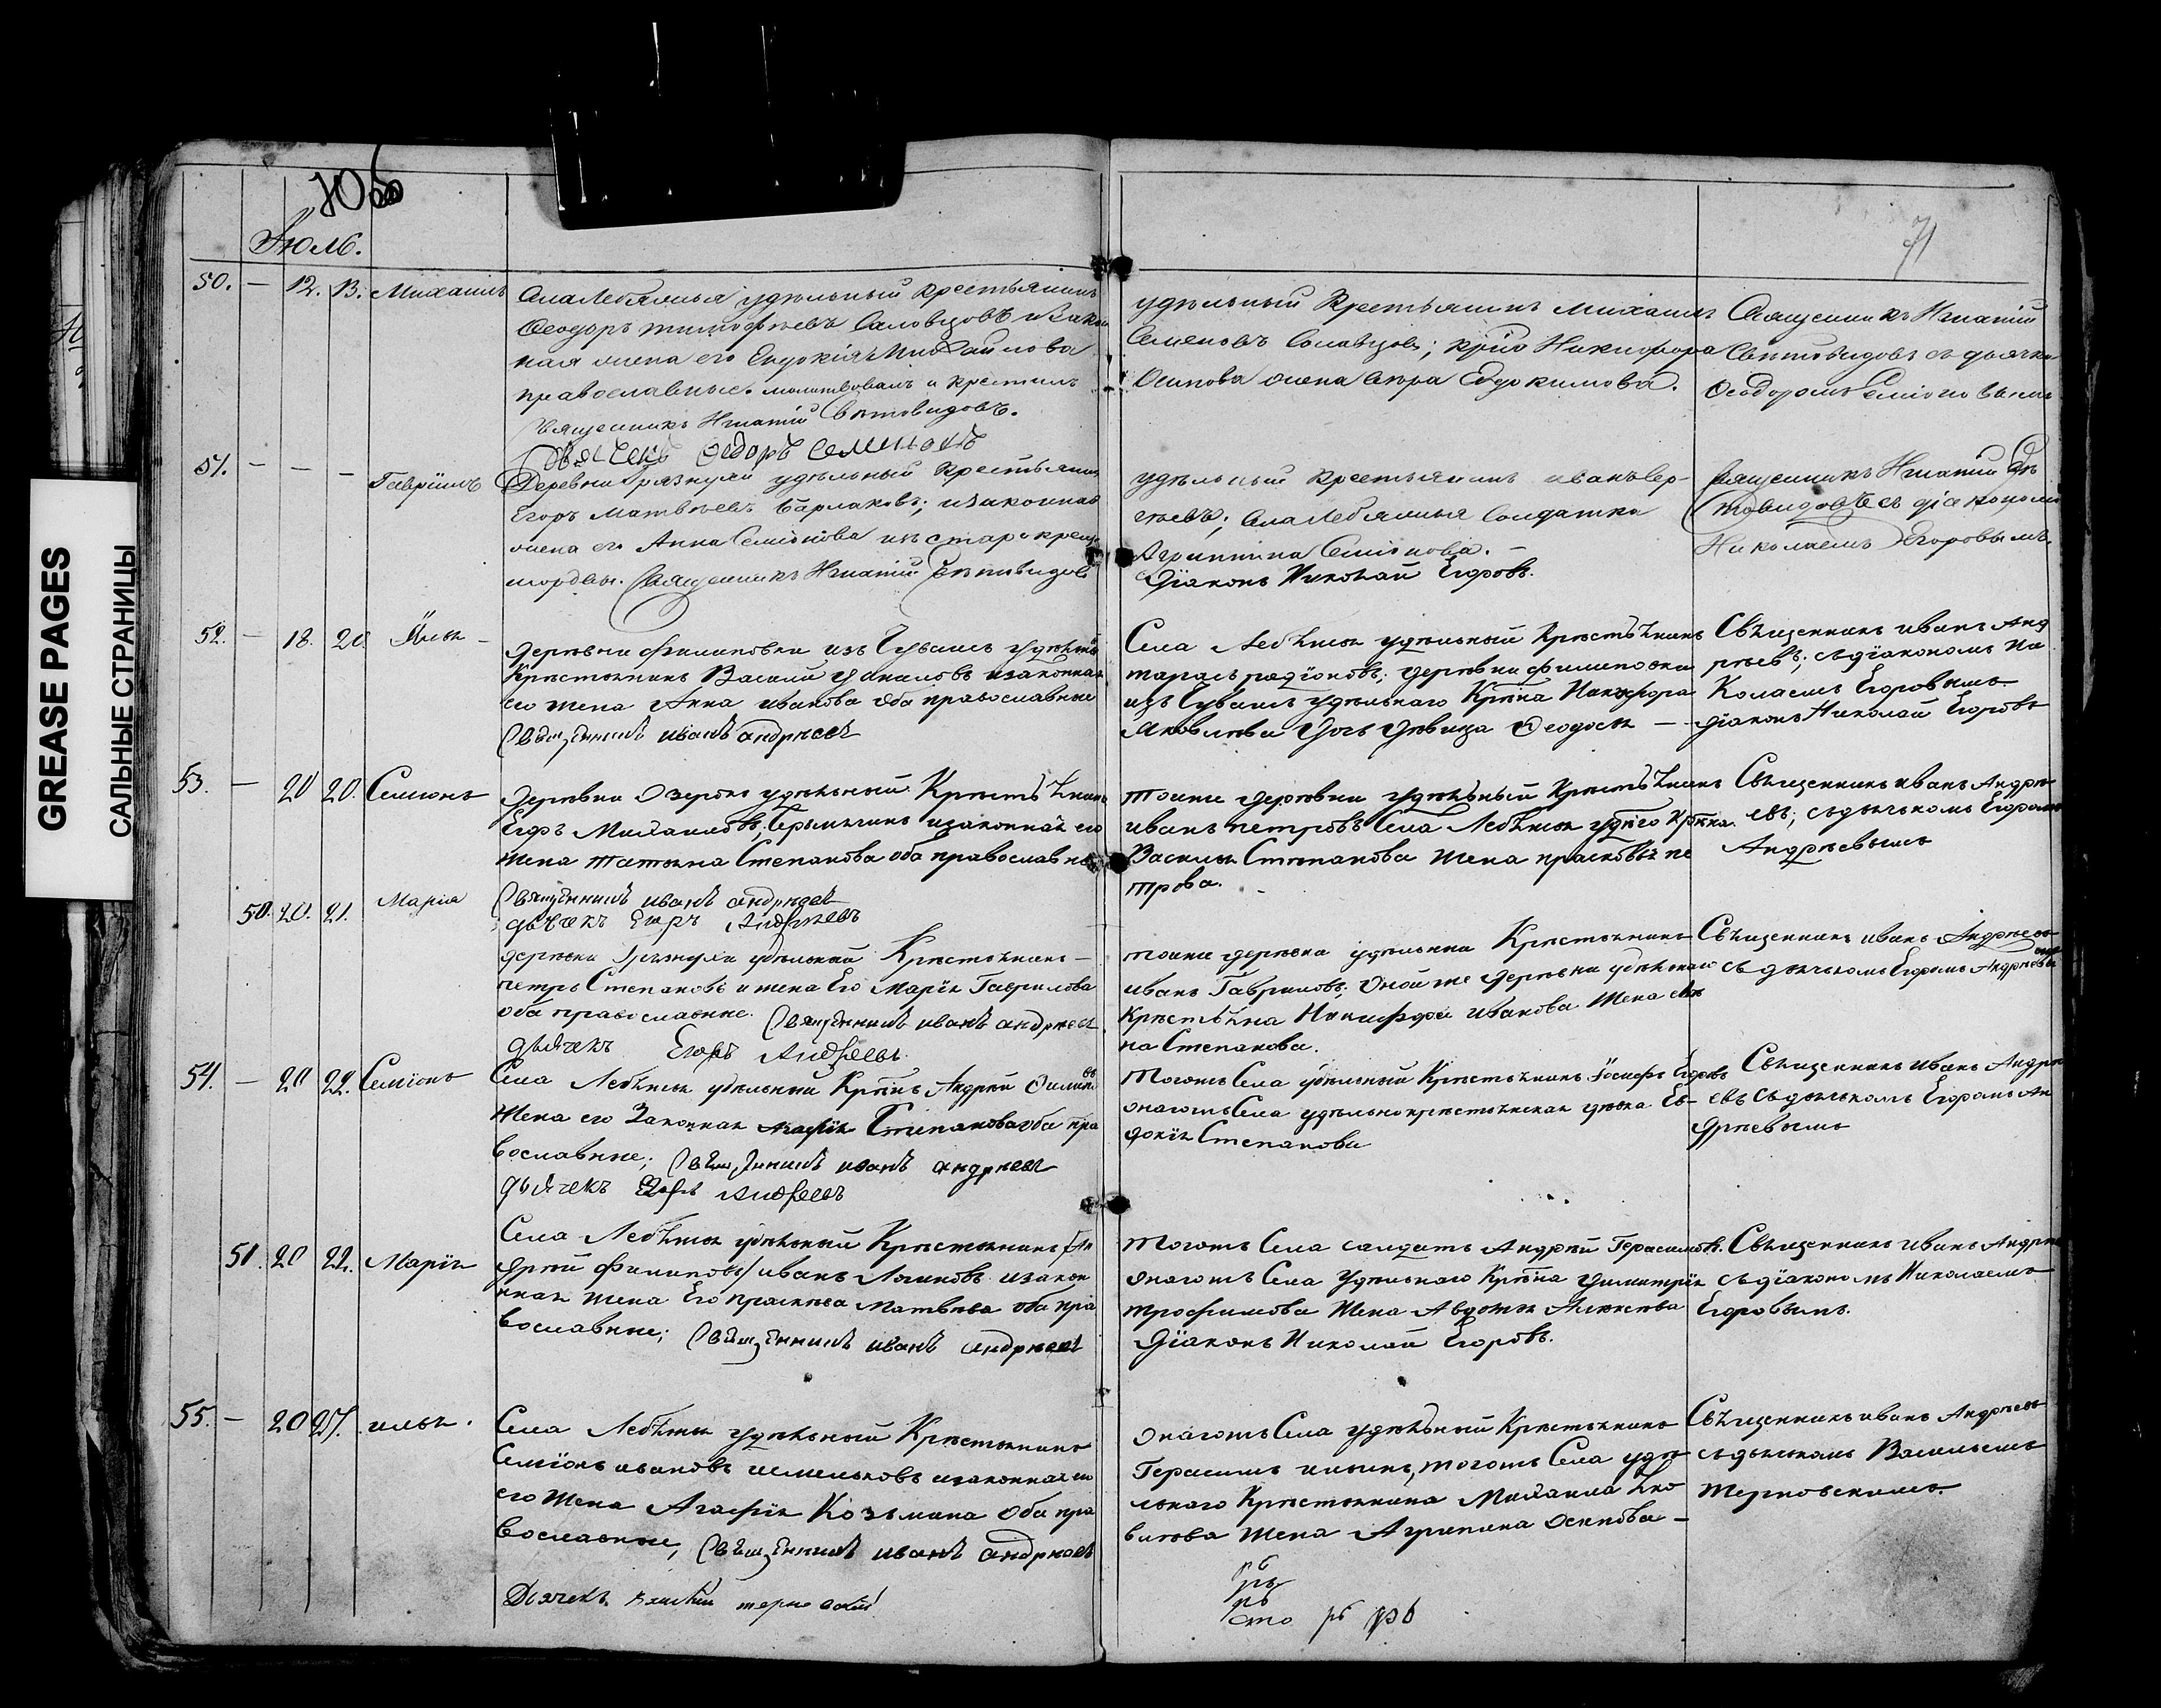 GREASE PAGES
САЛЬНЫЕ СТРАНИЦЫ
Іюль.
71
50. — 12. 13. Михаилъ
Села Лебяжья удѣльный крестьянинъ
Ѳеодоръ Тимофѣевъ Саловцовъ и закон
ная жена его Евдокія Михайлова
православные. молитвовалъ и крестилъ
Священникъ Игнатій Свѣтовидовъ.
Дьячекъ Ѳедоръ Семионовъ
удѣльный Крестьянинъ Михаилъ
Семеновъ Солавцовъ; Никифора
Осипова жена Евдокимова.
Священникъ Игнатій
Свѣтовидовъ съ дьячкомъ
Ѳеодоромъ Семіоновымъ
51. — — — Гавріилъ
Деревни Грязнухи удѣльный Крестьянинъ
Егоръ Матвѣевъ Барлаковъ; и законная
жена его Анна Семіонова изъ старокрещ.
мордвы. Священникъ Игнатій Свѣтовидовъ
удѣльный крестьянинъ иванъ Сер-
гѣевъ; Села Лебяжья Солдатка
Агриппина Семіонова. —
Діаконъ Николай Егоровъ.
Священникъ Игнатій Свѣ
товидовъ съ діакономъ
Николаемъ Егоровымъ.
52. — 18. 20. Илья —
деревни филиповки изъ Чувашъ удѣльный
Крестьянинъ Василій Даниловъ и законная
его жена Анна иванова оба православные
Священникъ иванъ андреевъ
Села Лебяжья удѣльный Крестьянинъ
тарасъ радіоновъ; деревни филиповки
изъ Чувашъ удѣльнаго Кр-на Никифора
Яковлева дочь дѣвица Ѳеодосья —
Священникъ иванъ Анд
рѣевъ; съ діакономъ Ни
Колаемъ Егоровымъ
діаконъ Николай Егоровъ
53. — 20 20. Семионъ
деревни Озерокъ удѣльный Крестьянинъ
Егоръ Михаиловъ и законная его
жена татьяна Степанова оба православные
Священникъ иванъ андреевъ
дьячекъ Егоръ Андреевъ
тойже деревни удѣльный Крестьянинъ
иванъ петровъ Села Лебяжья Кр-на
Василья Степанова жена прасковья пе
трова. —
Священникъ иванъ Андре
евъ; съ дьячкомъ Егоромъ
Андреевымъ
50. 20. 21. Марія
деревни Грязнухи удѣльный Крестьянинъ —
петръ Степановъ и жена Его Марія Гаврилова
оба православные. Священникъ иванъ андреевъ
дьячекъ Егоръ Андреевъ.
тойже деревни удѣльный Крестьянинъ
иванъ Гавриловъ; Оной же деревни удѣльнаго
Крестьянина Никифора иванова жена еле
на Степанова.
Священникъ иванъ Андреевъ
съ дьячкомъ Егоромъ Андреевымъ
54. — 20 22. Семіонъ
Села Лебяжья удѣльный Кр-нъ Андрей Филиповъ
Жена его Законная Агафія Степанова оба пра
вославные; Священникъ иванъ андреевъ
дьячекъ Егоръ Андреевъ
тогожъ Села удѣльный Крестьянинъ Іосифъ Егоровъ
онагожъ Села удѣльнокрестьянская дѣвка Ев-
докія Степанова
Священникъ иванъ Андре
евъ съ дьячкомъ Егоромъ Ан
дреевымъ
51. 20 22. Марія
Села Лебяжья удѣльный Крестьянинъ /Ан
дрей филиповъ/ иванъ Логиновъ и закон
ная жена Его праскева Матвѣева оба пра
вославные; Священникъ иванъ андреевъ
тогожъ Села салдатъ Андрей Герасимовъ.
онагожъ Села удѣльнаго Кр-на димитрія
трофимова жена Авдотья Алексѣева
Діаконъ Николай Егоровъ.
Священникъ иванъ Андре
съ діакономъ Николаемъ
Егоровымъ.
55. — 20 21. илья.
Села Лебяжья удѣльный Крестьянинъ
Семіонъ ивановъ и законная
его жена Агафія Козьмина оба пра
вославные, Священникъ иванъ андреевъ
Дьячекъ Василій терновский
онагожъ Села удѣльный Крестьянинъ
Герасимъ ильинъ, тогожъ Села удѣ
льнаго Крестьянина Михаила Яко
влева жена Агрипина осипова —
Священникъ иванъ Андреевъ
съ дьячкомъ Васильемъ
терновскимъ.